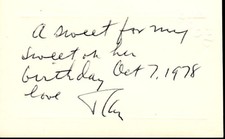 A sweet for my
sweet on her
birthday Oct 7, 1978
love